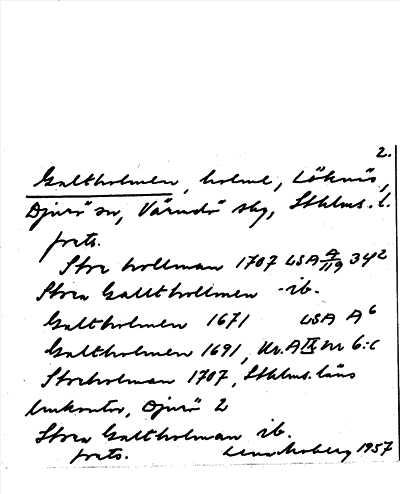 2.
Galtholmen, holme, Löknäs,
Djurö sn, Värmdö skg, Sthlms. l.
forts.
Stor hollman 1707 LSA A/119 342
Stora Gallthollmen - ib.
Galtholmen 1671 LSA A6
Galtholmen 1691, Kr. A IX nr 6:c
Storholman 1707, Sthlms. läns
lmkontor, Djurö 2
Stora Galtholman ib.
forts. 1957